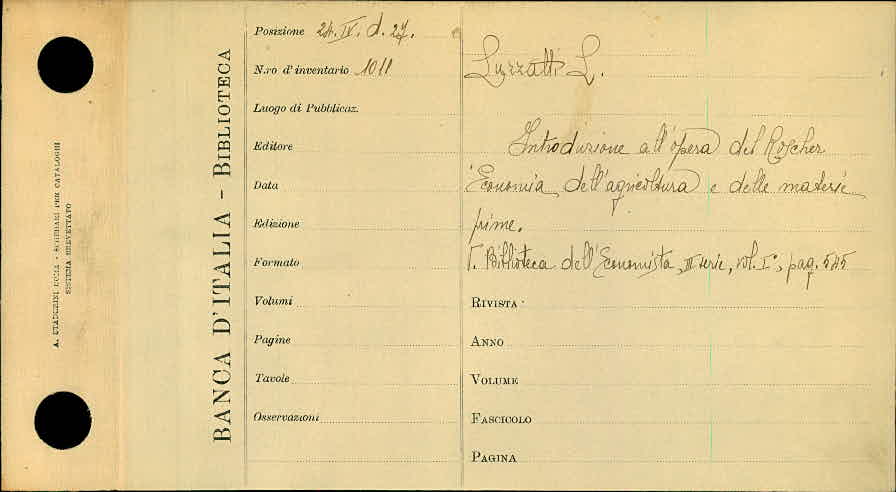 A. STADERINI ROMA - SCHEDARI PER CATALOGHI
SISTEMA BREVETTATO
BANCA D'ITALIA - BIBLIOTECA
Posizione 24. IV. d. 27.
N.ro d'inventario 1011
Luogo di Pubblicaz.
Editore
Data
Edizione
Formato
Volumi
Pagine
Tavole
Osservazioni
Luzzatti L.
Introduzione all'opera del Roscher
Economia dell'agricoltura e delle materie
prime.
V. Biblioteca dell'Economista, III serie, vol. I°, pag. 545
RIVISTA
ANNO
VOLUME
FASCICOLO
PAGINA